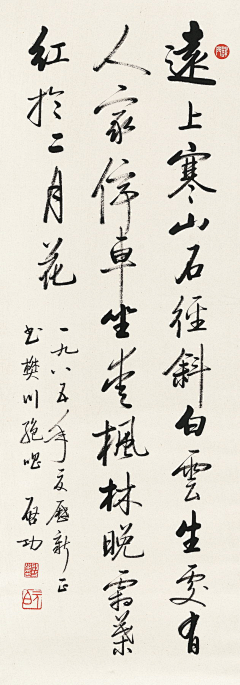 遠上寒山石徑斜白雲生處有
人家停車坐愛楓林晚霜葉
紅於二月花
一九八五年夏曆新正
書樊川絕唱 啟功